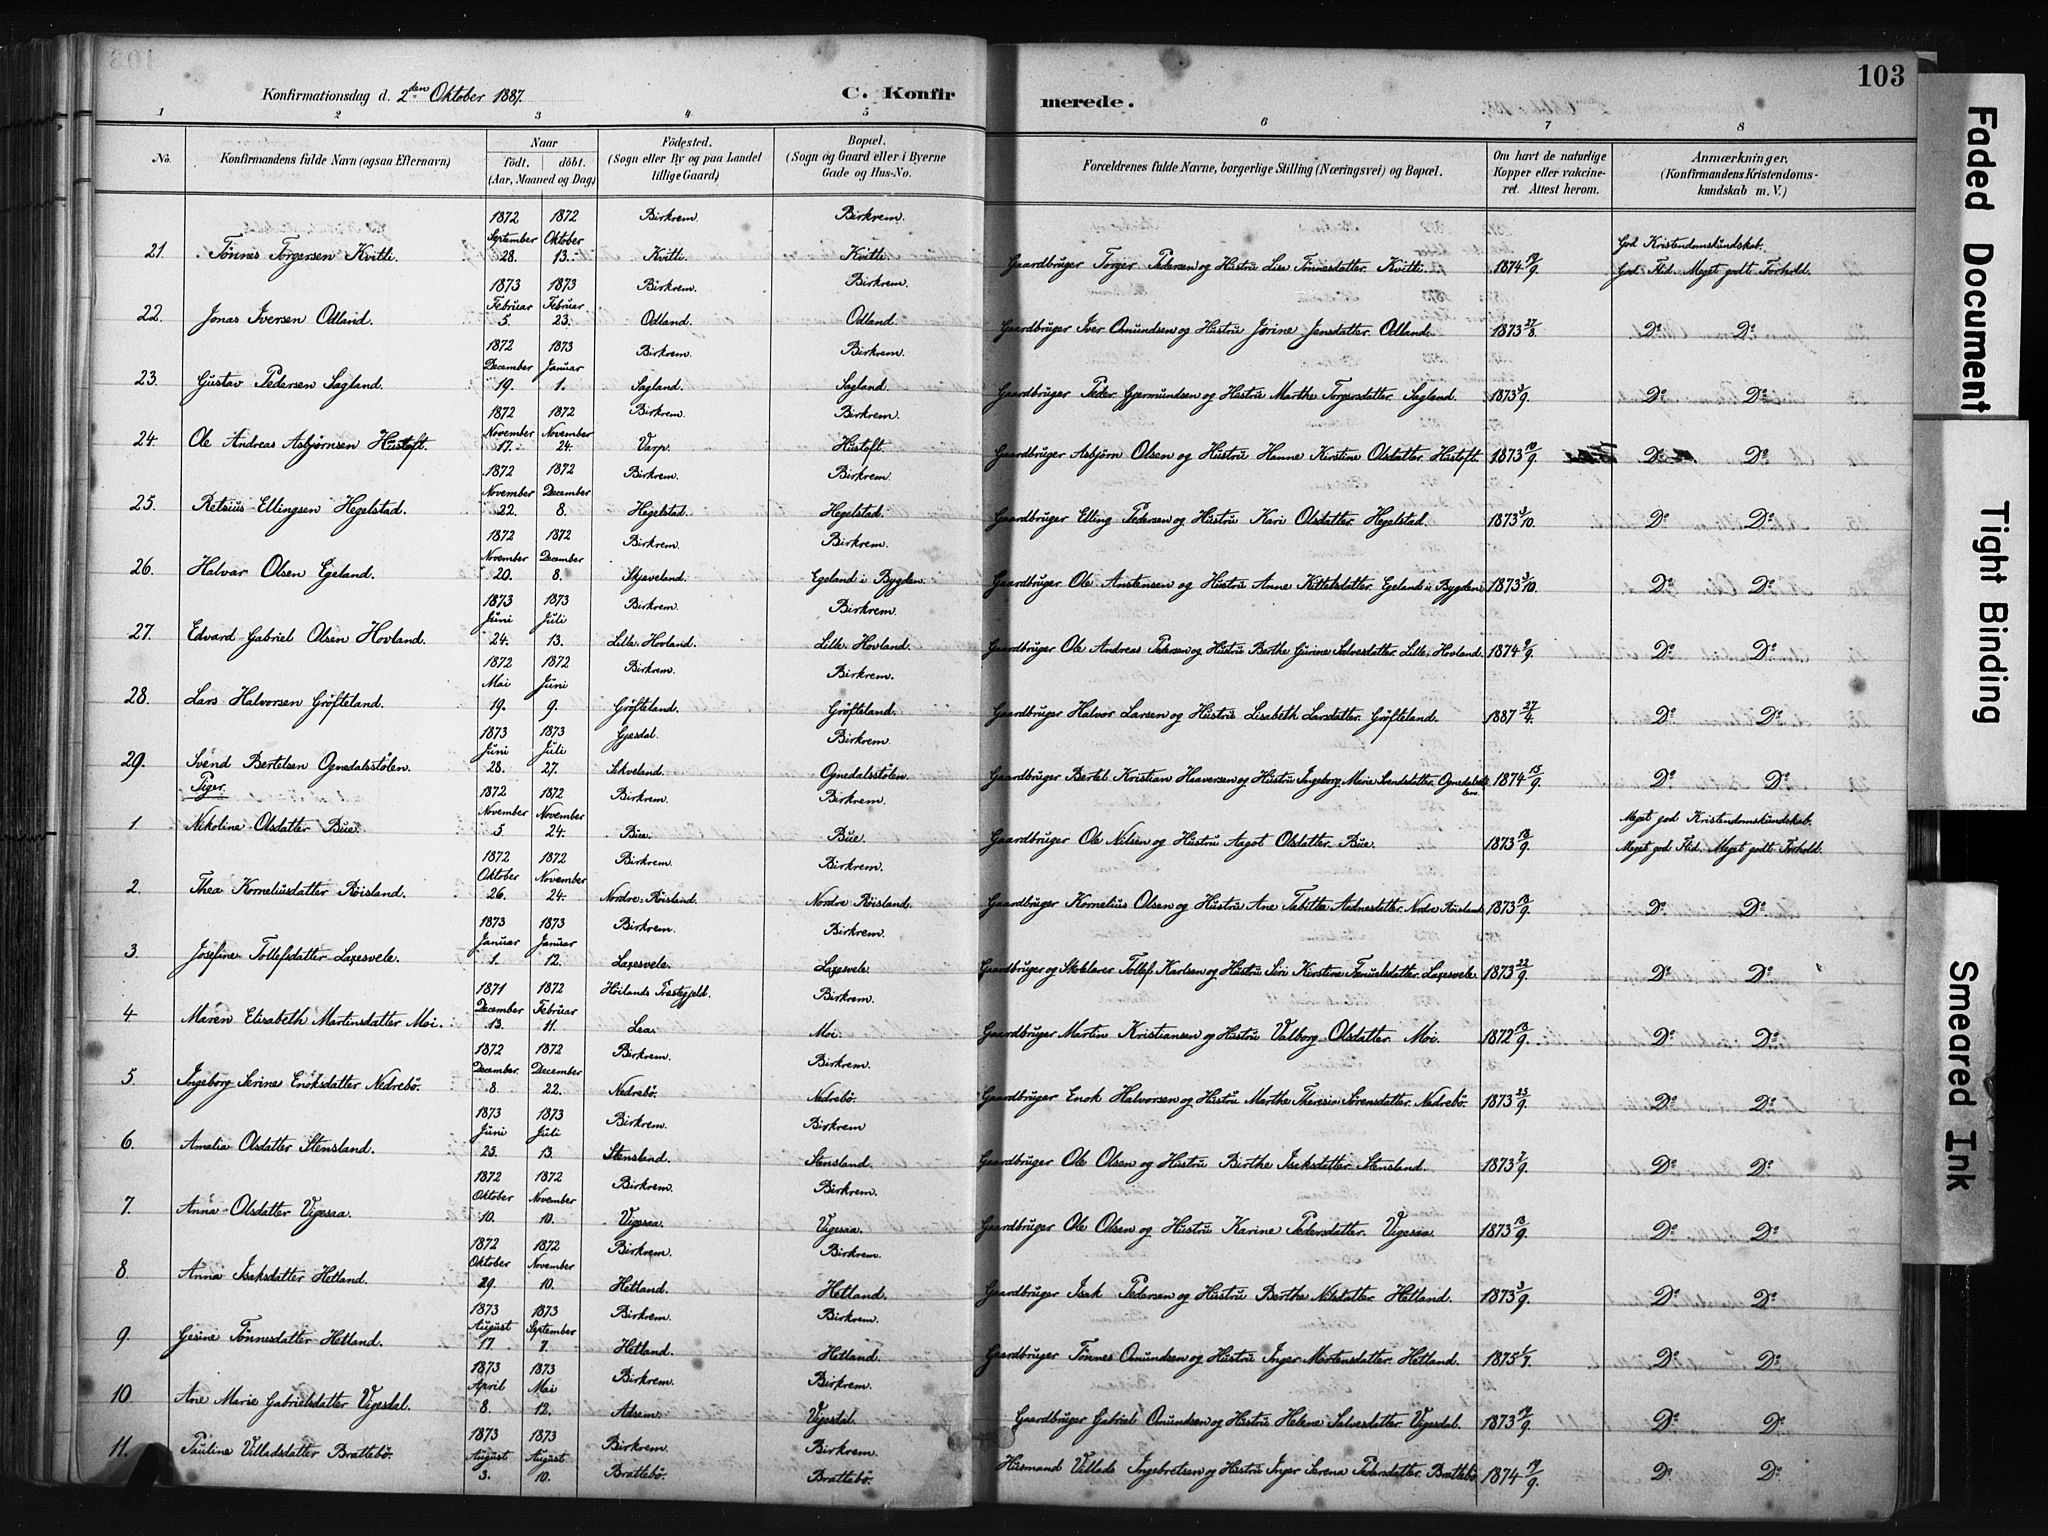 103
Konfirmationsdag d. 2den Oktober 1887. C. Konfir merede.
1 2 3 4 5 6 7 8
No. Konfirmandens fulde Navn (ogsaa Efternavn) Naar födt. döbt. (Aar, Maaned og Dag) Födested. (Sogn eller By og paa Landet tillige Gaard) Bopæl. (Sogn og Gaard eller i Byerne Gade og Hus-No. Forældrenes fulde Navne, borgerlige Stilling (Næringsvei) og Bopæl. Om havt de naturlige Kopper eller vakcineret. Attest herom. Anmærkninger. (Konfirmandens Kristendomskundskab m. V.)
1872 1872 Birkrem. Birkrem.
September Oktober God Kristendomskundskab.
21. Tönnes Torgersen Kvitli. 28. 13. Kvitli. Kvitli. Gaardbruger Torger Pedersen og Hustru Lise Tönnesdatter Kvitli. 1874 19/9. God Flid. Meget godt Forhold.
1873 1873 Birkrem. Birkrem.
Februar Februar
22. Jonas Iversen Odland. 5. 23. Odland. Odland. Gaardbruger Iver Omundsen og Hustru Jorine Jensdatter Odland. 1873 27/8. Do Do
1872 1873 Birkrem. Birkrem.
December Januar
23. Gustav Pedersen Sagland. 19. 1. Sagland. Sagland. Gaardbruger Peder Gjermundsen og Hustru Marthe Torgersdatter Sagland. 1873 3/9. Do Do
1872 1872 Birkrem. Birkrem.
November November
24. Ole Andreas Asbjörnsen Hustoft. 17. 24. Varp. Hustoft. Gaardbruger Asbjörn Olsen og Hustru Hanne Kirstine Olsdatter Hustoft. 1873 10/9. Do Do
1872 1872 Birkrem. Birkrem.
November December
25. Retsius Ellingsen Hegelstad. 22. 8. Hegelstad. Hegelstad. Gaardbruger Elling Pedersen og Hustru Kari Olsdatter Hegelstad. 1873 3/10. Do Do
1872 1872 Birkrem. Birkrem.
November December
26. Halvar Olsen Egeland. 20. 8. Skjæveland. Egeland i Bygden. Gaardbruger Ole Anstensen og Hustru Anne Kittelsdatter Egeland i Bygden. 1873 3/10. Do Do
1873 1873 Birkrem. Birkrem.
Juni Juli
27. Edvard Gabriel Olsen Hovland. 24. 13. Lille Hovland. Lille Hovland. Gaardbruger Ole Andreas Pedersen og Hustru Berthe Gurine Salvesdatter Lille Hovland. 1874 9/9. Do Do
1872 1872 Birkrem. Birkrem.
Mai Juni
28. Lars Halvorsen Gröfteland. 19. 9. Gröfteland. Gröfteland. Gaardbruger Halvor Larsen og Hustru Lisabeth Larsdatter Gröfteland. 1887 27/4. Do Do
1873 1873 Gjesdal. Birkrem.
Juni Juli
29. Svend Bertelsen Ognedalsstölen. 28. 27. Sekveland. Ognedalsstölen. Gaardbruger Bertel Kristian Haaversen og Hustru Ingeborg Marie Svendsdatter 1874 15/9. Do Do
Piger.
1872 1872 Birkrem. Birkrem.
November November Meget god Kristendomskundskab.
1. Nikoline Olsdatter Bue. 5 24. Bue. Bue. Gaardbruger Ole Nilsen og Hustru Aagot Olsdatter Bue. 1873 18/9. Meget god Flid. Meget godt Forhold.
1872 1872 Birkrem. Birkrem.
Oktober November
2. Thea Korneliusdatter Röisland. 26. 24. Nordre Röisland. Nordre Röisland. Gaardbruger Kornelius Olsen og Hustru Ane Tabitha Aadnesdatter Nordre Röisland 1873 18/9. Do Do
1873 1873 Birkrem. Birkrem.
Januar Januar
3. Josefine Tollefsdatter Laxesvele. 1. 12. Laxesvele. Laxesvele. Gaardbruger og Skolelærer Tollef Karlsen og Hustru Siri Kirstine Laxesvele. 1873 22/9. Do Do
1871 1872 Höilands Præstegjeld. Birkrem.
December Februar
4. Maren Elisabeth Martinsdatter Moi. 13. 11. Lea. Moi. Gaardbruger Martin Kristiansen og Hustru Valborg Olsdatter Moi. 1872 18/9. Do Do
1872 1872 Birkrem. Birkrem.
December. December
5. Ingeborg Serine Enoksdatter Nedrebö. 8 22. Nedrebö. Nedrebö. Gaardbruger Enok Halvorsen og Hustru Marthe Theresia Sörensdatter Nedrebö. 1873 23/9. Do Do
1873 1873 Birkrem. Birkrem
Juni Juli
6. Amalia Olsdatter Stensland. 25. 13. Stensland. Stensland. Gaardbruger Ole Olsen og Hustru Birthe Isaksdatter Stensland. 1873 7/9. Do Do
1872 1872 Birkrem. Birkrem.
Oktober November
7. Anna Olsdatter Vigesaa. 10. 10. Vigesaa. Vigesaa. Gaardbruger Ole Olsen og Hustru Karine Pedersdatter Vigesaa. 1873 13/9. Do Do
1872 1872 Birkrem. Birkrem.
Oktober November
8. Anna Isaksdatter Hetland. 29. 10. Hetland. Hetland. Gaardbruger Isak Pedersen og Hustru Berthe Nilsdatter Hetland. 1873 3/9. Do Do
1873 1873 Birkrem. Birkrem.
August September
9. Gesine Tönnesdatter Hetland. 17. 7. Hetland. Hetland. Gaardbruger Tönnes Omundsen og Hustru Inger Mortensdatter Hetland. 1875 1/7. Do Do
1873 1873 Birkrem. Birkrem.
April Mai
10. Ane Marie Gabrielsdatter Vigesdal. 8. 12. Adsem. Vigesdal. Gaardbruger Gabriel Omundsen og Hustru Helene Salvesdatter Vigesdal. 1873 17/9. Do Do
1873 1873 Birkrem. Birkrem.
August August
11. Pauline Villadsdatter Brattebö. 3. 10. Brattebö. Brattebö. Husmand Villads Ingebretsen og Hustru Inger Serena Pedersdatter Brattebö. 1874 19/9. Do Do
Faded Document
Tight Binding
Smeared Ink